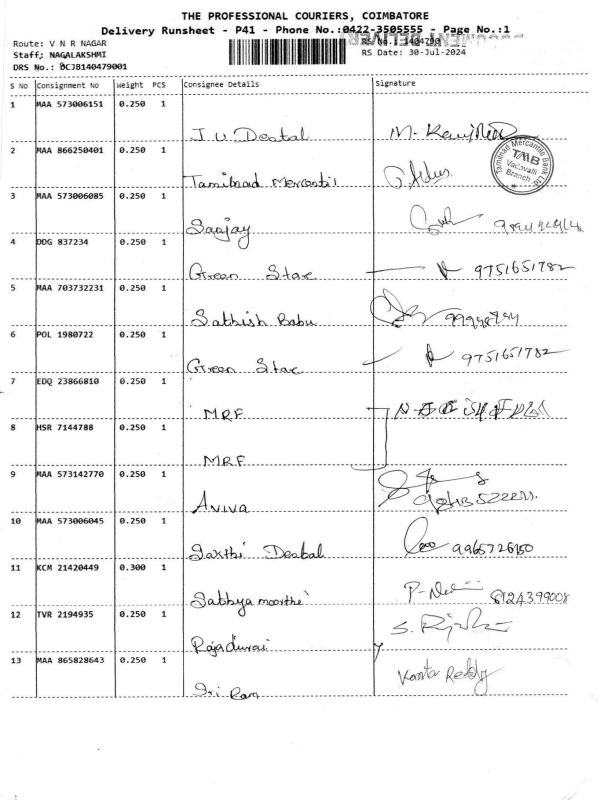 THE PROFESSIONAL COURIERS, COIMBATORE
Delivery Runsheet - P41 - Phone No.:0422-3505555 - Page No.:1
Route: V N R NAGAR
RS No.: 1404790
Staff: NAGALAKSHMI
RS Date: 30-Jul-2024
DRS No.: DCJB140479001
S No Consignment No Weight PCS Consignee Details Signature
1 MAA 573006151 0.250 1
J U Dental
2 MAA 866250401 0.250 1
Tamilnad Mercantil
Tamilnad Mercantile Bank Ltd.
TMB
Vadavalli
Branch
3 MAA 573006085 0.250 1
Sanjay
4 DDG 837234 0.250 1
Green Star 9751651782
5 MAA 703732231 0.250 1
Sathish Babu
6 POL 1980722 0.250 1
Green Star 9751651782
7 EDQ 23866810 0.250 1
MRF
8 HSR 7144788 0.250 1
MRF
9 MAA 573142770 0.250 1
Aviva
10 MAA 573006045 0.250 1
Sakthi Dental 9965726150
11 KCM 21420449 0.300 1
Sathya moorthi 8124399008
12 TVR 2194935 0.250 1
Rajadurai
13 MAA 865828643 0.250 1
Sri Ram Kavita Reddy